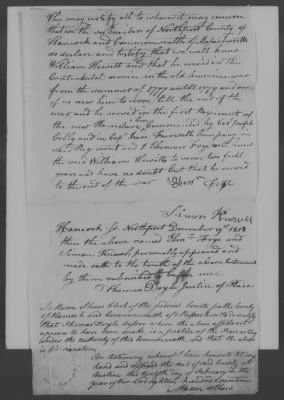 This may certify all to whom it may concern
that we the subscribers of Northport County of
Hancock and Commonwealth of Massachusetts
do declare and testify that we well knew
William Hewitt and that he served in the
Continental service in the old American war
from the summer of 1777 untill 1779 and one
of us new him to serve till the end of the
war and he served in the first Regiment of
the new Hampshire Commanded by Col Joseph
Cilly and in Capt Isaac Farwell Company in
said Regiment and I Ebenezer Frye well knew
the said William Hewitt to serve two full
years and have no doubt but that he served
to the end of the war Ebenr Frye
Simon
Hancock ss Northport December 19th 1818
then the above named Ebenr Frye and
Simon personally appeared and
made oath to the truth of the above Instrument
by them subscribed before me
Thomas Doyle Justice of Peace
I Mason Shaw Clerk of the judicial Courts for the County
of Hancock and Commonwealth of Massachusetts do certify
that Thomas Doyle before whom the above affidavit
appears to have been made is a justice of the Peace acting
under the authority of this Commonwealth and that the above
is his signature
In testimony whereof I have hereunto set my
hand and affixed the seal of said County at
Castine this twelfth day of February in the
year of our Lord eighteen hundred & nineteen
Mason Shaw